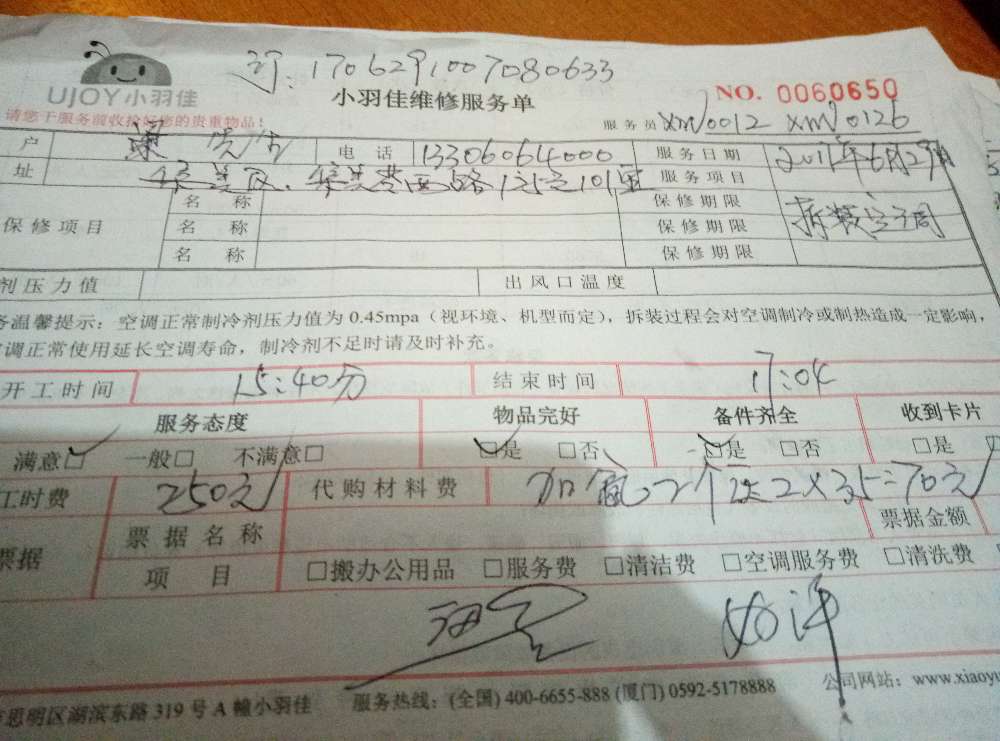 订:1706291007080633
UJOY小羽佳
小羽佳维修服务单
NO. 0060650
请您于服务前收拾好您的贵重物品!
服务员 XM0012 XM0126
户 先生 电话 13306064000 服务日期 2017年6月29日
址 集美区. 集美 西路 101 服务项目
拆装空调
保修项目
名称 保修期限
名称 保修期限
名称 保修期限
剂压力值 出风口温度
务温馨提示:空调正常制冷剂压力值为 0.45mpa(视环境、机型而定),拆装过程会对空调制冷或制热造成一定影响,
调正常使用延长空调寿命,制冷剂不足时请及时补充。
开工时间 15:40分 结束时间 17:04
服务态度 物品完好 备件齐全 收到卡片
满意□ 一般□ 不满意□ □是 □否 □是 □否 □是
工时费 250元 代购材料费 加氟 2×35=70元
票据 票据名称 票据金额
项目 □搬办公用品 □服务费 □清洁费 □空调服务费 □清洗费
思明区湖滨东路 319 号 A 幢小羽佳 服务热线:(全国) 400-6655-888 (厦门) 0592-5178888 公司网站:www.xiaoyu